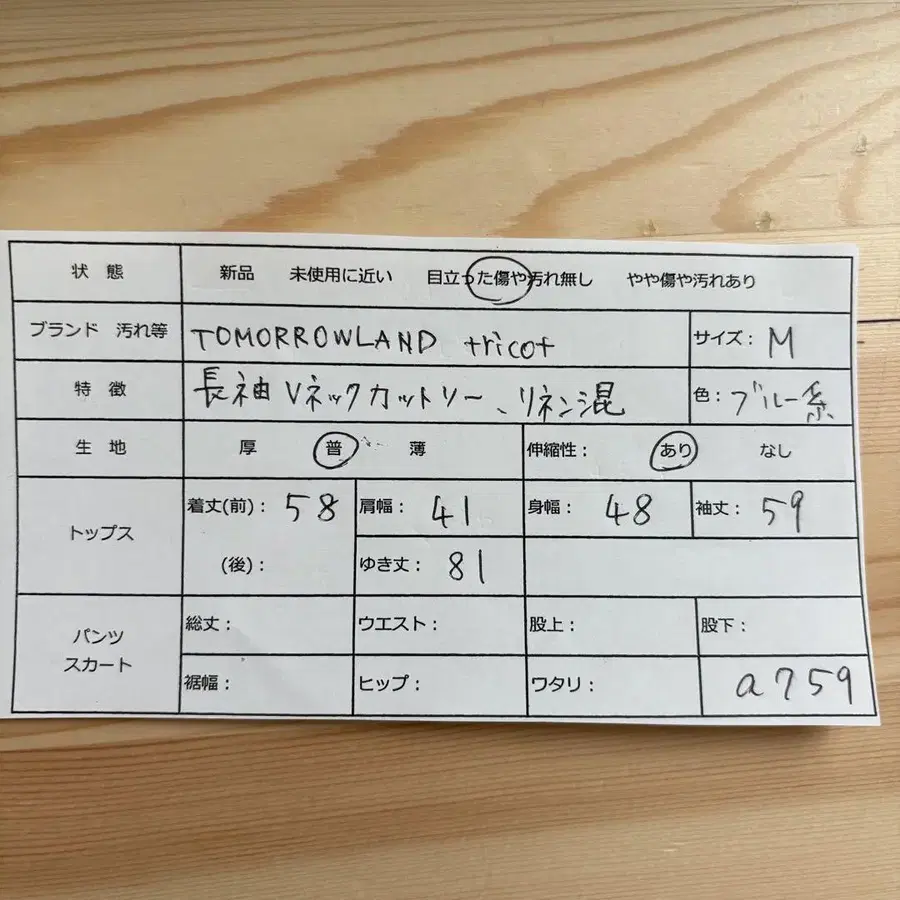 状態 新品 未使用に近い 目立った傷や汚れ無し やや傷や汚れあり
ブランド 汚れ等 TOMORROWLAND tricot サイズ: M
特徴 長袖 Vネックカットソー、リネン混 色: ブルー系
生地 厚 普 薄 伸縮性: あり なし
トップス 着丈(前): 58 肩幅: 41 身幅: 48 袖丈: 59
(後): ゆき丈: 81
パンツ スカート 総丈: ウエスト: 股上: 股下:
裾幅: ヒップ: ワタリ: a759